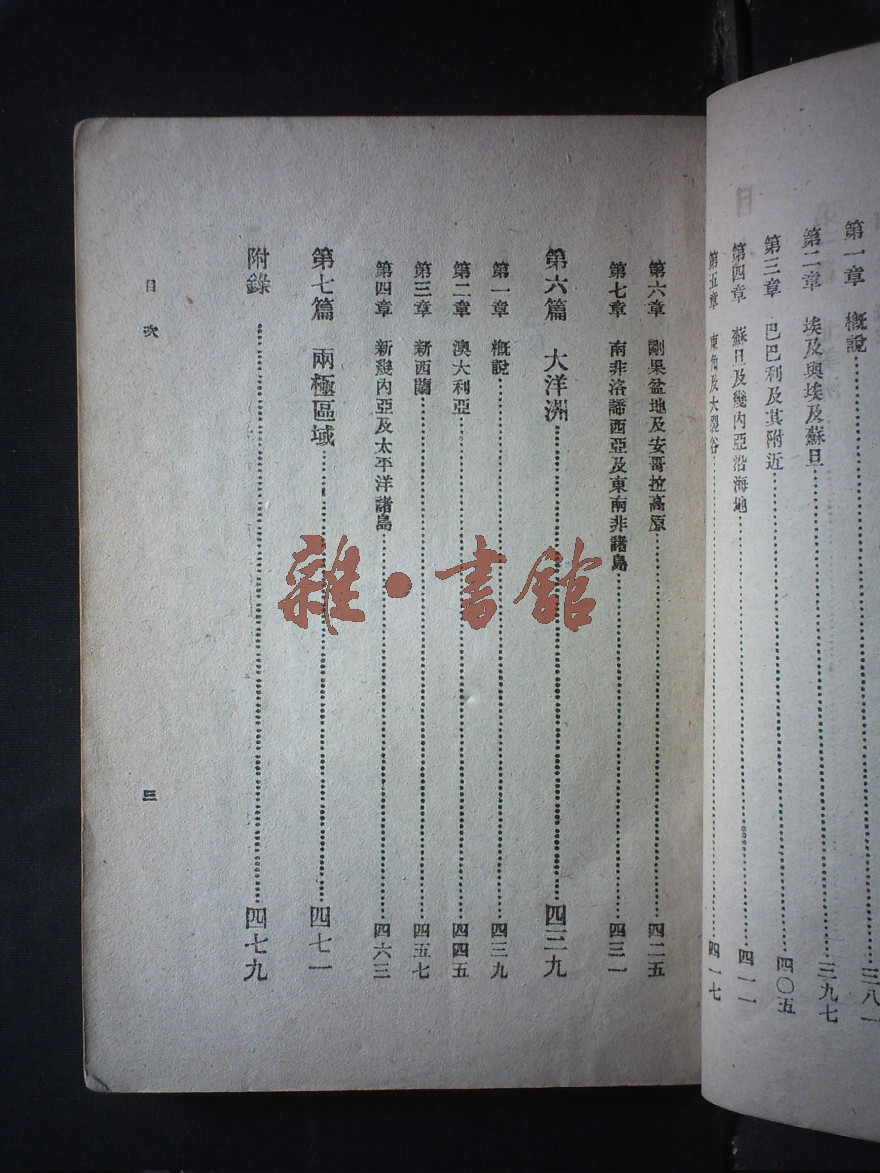 第一章 概說……三八一
第二章 埃及與埃及蘇旦……三九七
第三章 巴巴利及其附近……四〇五
第四章 蘇旦及幾內亞沿海地……四一一
第五章 東角及大裂谷……四一七
第六章 剛果盆地及安哥拉高原……四二五
第七章 南非洛諦西亞及東南非諸島……四三一
第六篇 大洋洲……四三九
第一章 概說……四三九
第二章 澳大利亞……四四五
第三章 新西蘭……四五七
第四章 新幾內亞及太平洋諸島……四六三
第七篇 兩極區域……四七一
附錄……四七九
目次 三
雜·書館